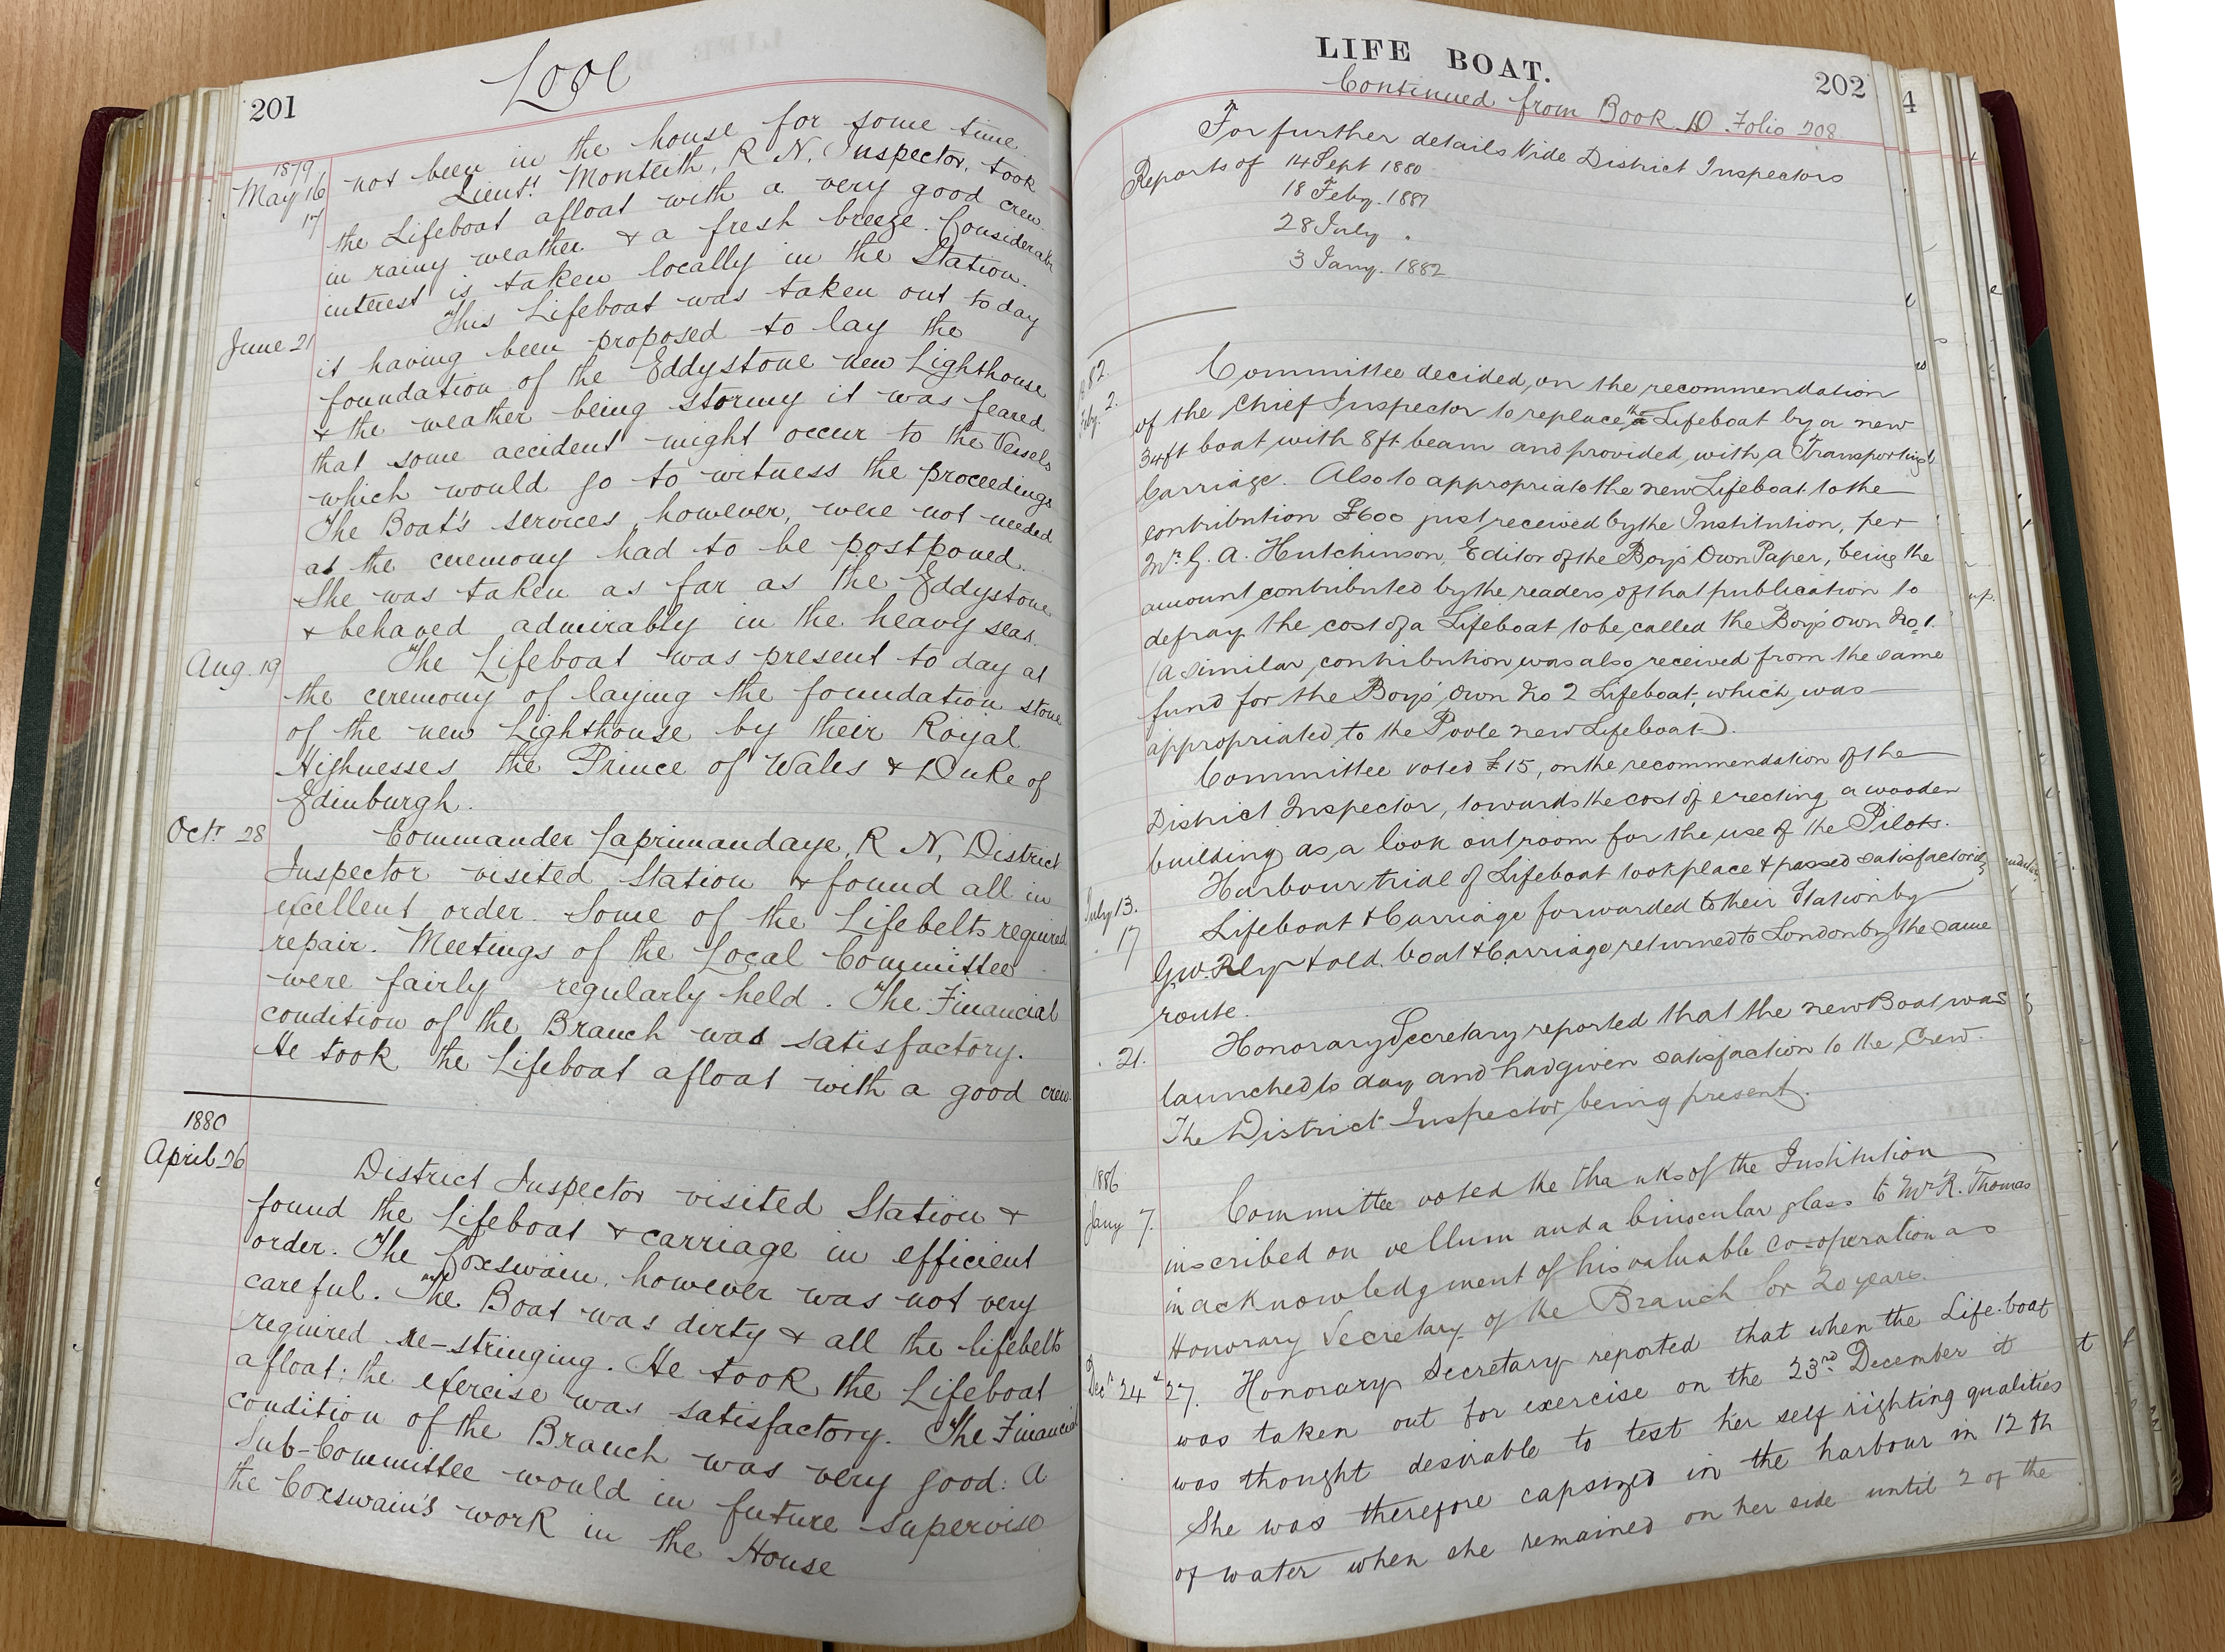 201
Looe
not been in the house for some time.
1879
May 16
Lieut. Monteith, R N, Inspector, took
17
the Lifeboat afloat with a very good crew
in rainy weather & a fresh breeze. Considerable
interest is taken locally in the Station.
June 21
This Lifeboat was taken out to day
it having been proposed to lay the
foundation of the Eddystone new Lighthouse
& the weather being stormy it was feared
that some accident might occur to the Vessels
which would go to witness the proceedings
The Boat's services, however, were not needed
as the ceremony had to be postponed.
She was taken as far as the Eddystone
& behaved admirably in the heavy seas.
Aug. 19
The Lifeboat was present to day at
the ceremony of laying the foundation stone
of the new Lighthouse by their Royal
Highnesses the Prince of Wales & Duke of
Edinburgh.
Octr. 28
Commander Laprimandaye, R N, District
Inspector visited Station & found all in
excellent order. Some of the Lifebelts required
repair. Meetings of the Local Committee
were fairly regularly held. The Financial
condition of the Branch was satisfactory.
He took the Lifeboat afloat with a good crew.
1880
April 26
District Inspector visited Station &
found the Lifeboat & carriage in efficient
order. The Coxswain, however was not very
careful. The Boat was dirty & all the lifebelts
required re-stringing. He took the Lifeboat
afloat; the exercise was satisfactory. The Financial
condition of the Branch was very good: A
Sub-Committee would in future supervise
the Coxswain's work in the House
LIFE BOAT.
202
4
Continued from Book D Folio 208
For further details Vide District Inspectors
Reports of 14 Sept 1880
18 Feby. 1881
28 July .
3 Jany. 1882
1882.
Feby. 2.
Committee decided, on the recommendation
of the Chief Inspector to replace the Lifeboat by a new
34ft boat with 8ft beam and provided with a Transporting
Carriage. Also to appropriate the new Lifeboat to the
contribution £600 just received by the Institution, per
Mr. G. A. Hutchinson, Editor of the Boy's Own Paper, being the
amount contributed by the readers of that publication to
defray the cost of a Lifeboat to be called the Boy's Own No 1.
(A similar contribution was also received from the same
fund for the Boys' Own No 2 Lifeboat, which was
appropriated to the Poole new Lifeboat).
Committee voted £15, on the recommendation of the
District Inspector, towards the cost of erecting a wooden
building as a look out room for the use of the Pilots.
July 13.
Harbour trial of Lifeboat took place & passed satisfactorily
. 17
Lifeboat & Carriage forwarded to their Station by
G.W. Rly & old boat & Carriage returned to London by the same
route.
. 21.
Honorary Secretary reported that the new Boat was
launched to day and had given satisfaction to the Crew.
The District Inspector being present.
1886
Jany 7.
Committee voted the thanks of the Institution
inscribed on vellum and a binocular glass to Mr R. Thomas
in acknowledgment of his valuable co-operation as
Honorary Secretary of the Branch for 20 years.
Decr 24 & 27. Honorary Secretary reported that when the Life-boat
was taken out for exercise on the 23rd December it
was thought desirable to test her self righting qualities
She was therefore capsized in the harbour in 12 ft
of water when she remained on her side until 2 of the